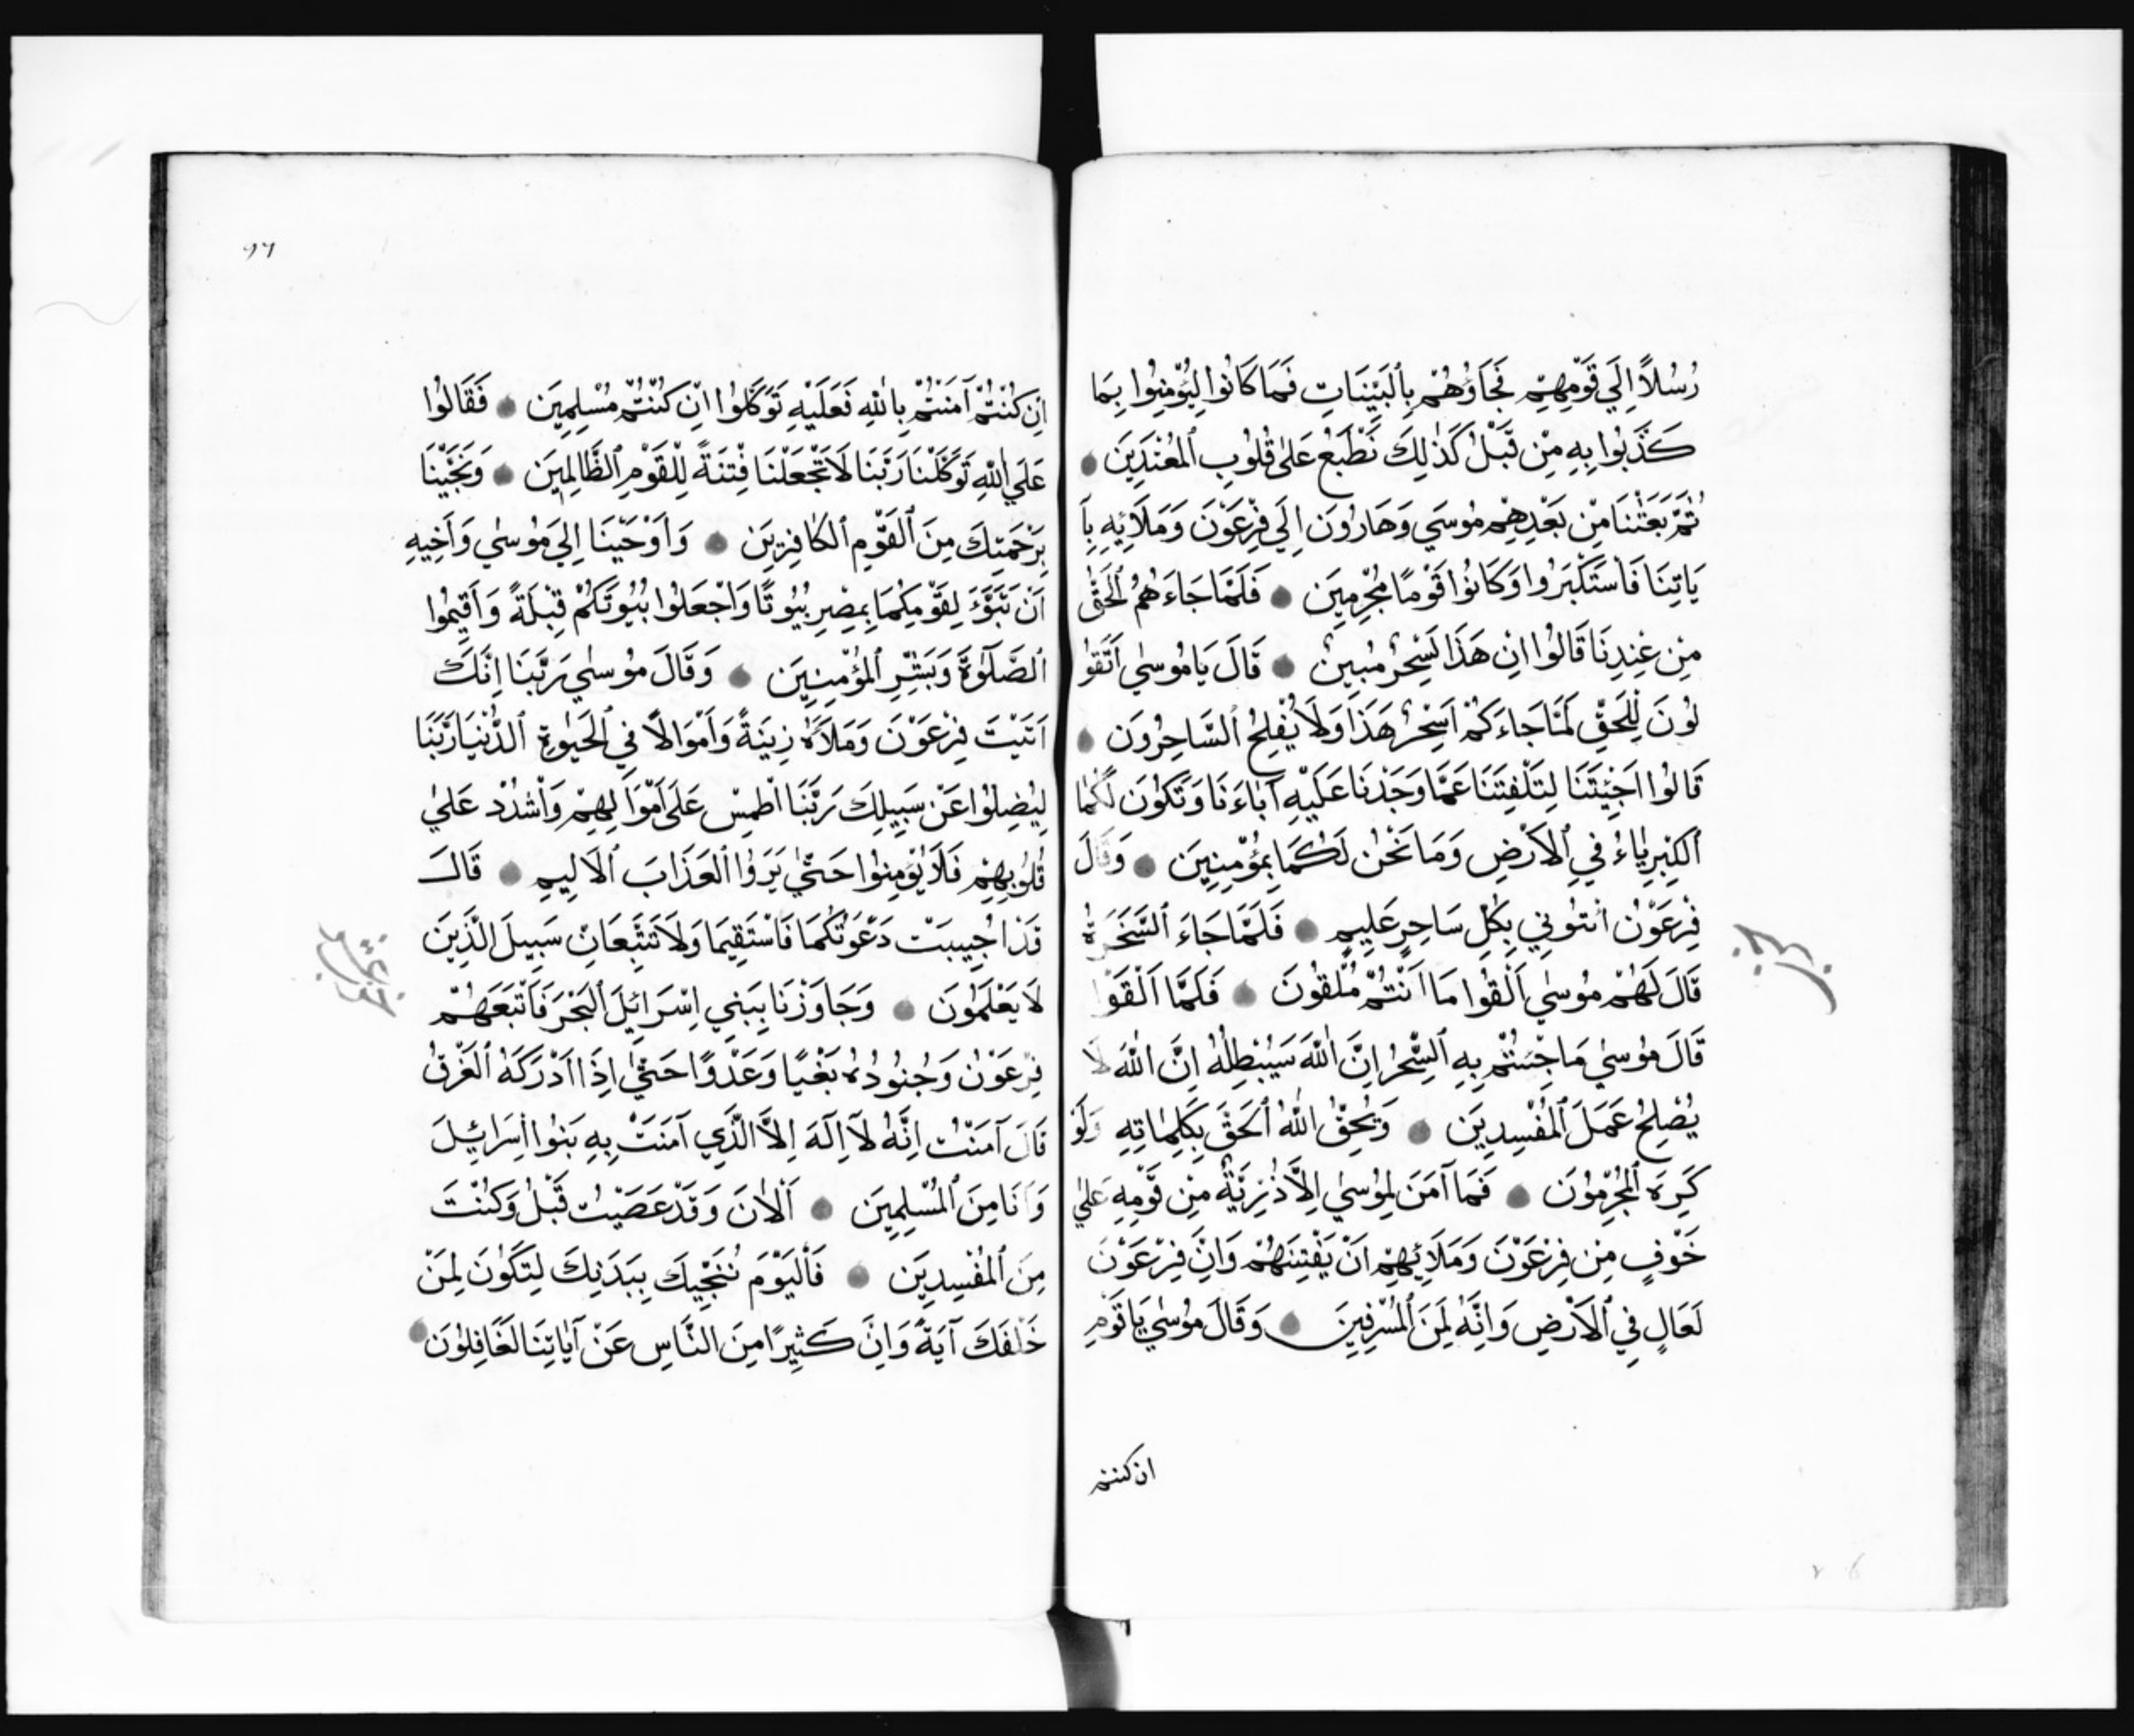 رُسُلًا اِلَي قَوْمِهِمْ فَجَاؤُهُمْ بِالْبَيِّنَاتِ فَمَا كَانُوا لِيُؤْمِنُوا بِمَا
كَذَّبُوا بِهِ مِنْ قَبْلُ كَذٰلِكَ نَطْبَعُ عَلٰى قُلُوبِ الْمُعْتَدِينَ
ثُمَّ بَعَثْنَا مِنْ بَعْدِهِمْ مُوسَي وَهَارُونَ اِلَي فِرْعَوْنَ وَمَلَائِهِ بِآ
يَاتِنَا فَاسْتَكْبَرُوا وَكَانُوا قَوْمًا مُجْرِمِينَ فَلَمَّا جَاءَهُمُ الْحَقُّ
مِنْ عِنْدِنَا قَالُوا اِنَ هَذَا لَسِحْرٌ مُبِينٌ قَالَ يَا مُوسٰي اَتَقُو
لُونَ لِلْحَقِّ لَمَّا جَاءَكُمْ اَسِحْرٌ هَذَا وَلَا يُفْلِحُ السَّاحِرُونَ
قَالُوا اَجِئْتَنَا لِتَلْفِتَنَا عَمَّا وَجَدْنَا عَلَيْهِ آبَاءَنَا وَتَكُونَ لَكُمَا
الْكِبْرِيَاءُ فِي الْاَرْضِ وَمَا نَحْنُ لَكُمَا بِمُؤْمِنِينَ وَقَالَ
فِرْعَوْنُ ائْتُونِي بِكُلِّ سَاحِرٍ عَلِيمٍ فَلَمَّا جَاءَ السَّحَرَةُ
قَالَ لَهُمْ مُوسٰي اَلْقُوا مَا اَنْتُمْ مُلْقُونَ فَلَمَّا اَلْقَوْا
قَالَ مُوسٰي مَا جِئْتُمْ بِهِ السِّحْرُ اِنَّ اللّٰهَ سَيُبْطِلُهُ اِنَّ اللّٰهَ لَا
يُصْلِحُ عَمَلَ الْمُفْسِدِينَ وَيُحِقُّ اللّٰهُ الْحَقَّ بِكَلِمَاتِهِ وَلَوْ
كَرِهَ الْمُجْرِمُونَ فَمَا آمَنَ لِمُوسٰي اِلَّا ذُرِّيَّةٌ مِنْ قَوْمِهِ عَلٰي
خَوْفٍ مِنْ فِرْعَوْنَ وَمَلَائِهِمْ اَنْ يَفْتِنَهُمْ وَاِنَّ فِرْعَوْنَ
لَعَالٍ فِي الْاَرْضِ وَاِنَّهُ لَمِنَ الْمُسْرِفِينَ وَقَالَ مُوسٰي يَا قَوْمِ
ان كنتم
٩٦
اِنْ كُنْتُمْ آمَنْتُمْ بِاللّٰهِ فَعَلَيْهِ تَوَكَّلُوا اِنْ كُنْتُمْ مُسْلِمِينَ فَقَالُوا
عَلَي اللّٰهِ تَوَكَّلْنَا رَبَّنَا لَا تَجْعَلْنَا فِتْنَةً لِلْقَوْمِ الظَّالِمِينَ وَنَجِّنَا
بِرَحْمَتِكَ مِنَ الْقَوْمِ الْكَافِرِينَ وَاَوْحَيْنَا اِلَي مُوسٰي وَاَخِيهِ
اَنْ تَبَوَّءَ لِقَوْمِكُمَا بِمِصْرِ بُيُوتًا وَاجْعَلُوا بُيُوتَكُمْ قِبْلَةً وَاَقِيمُوا
الصَّلٰوةَ وَبَشِّرِ الْمُؤْمِنِينَ وَقَالَ مُوسٰي رَبَّنَا اِنَّكَ
اَتَيْتَ فِرْعَوْنَ وَمَلَاَهُ زِينَةً وَاَمْوَالًا فِي الْحَيٰوةِ الدُّنْيَا رَبَّنَا
لِيُضِلُّوا عَنْ سَبِيلِكَ رَبَّنَا اطْمِسْ عَلَي اَمْوَالِهِمْ وَاشْدُدْ عَلٰي
قُلُوبِهِمْ فَلَا يُؤْمِنُوا حَتّٰي يَرَوُا الْعَذَابَ الْاَلِيمِ قَالَ
قَدْ اُجِيبَتْ دَعْوَتُكُمَا فَاسْتَقِيمَا وَلَا تَتَّبِعَانِ سَبِيلَ الَّذِينَ
لَا يَعْلَمُونَ وَجَاوَزْنَا بِبَنِي اِسْرَائِيلَ الْبَحْرَ فَاَتْبَعَهُمْ
فِرْعَوْنُ وَجُنُودُهُ بَغْيًا وَعَدْوًا حَتّٰي اِذَا اَدْرَكَهُ الْغَرَقُ
قَالَ آمَنْتُ اِنَّهُ لَا اِلَهَ اِلَّا الَّذِي آمَنَتْ بِهِ بَنُوا اِسْرَائِيلَ
وَاَنَا مِنَ الْمُسْلِمِينَ اَلْاٰنَ وَقَدْ عَصَيْتُ قَبْلُ وَكُنْتَ
مِنَ الْمُفْسِدِينَ فَالْيَوْمَ نُنَجِّيكَ بِبَدَنِكَ لِتَكُونَ لِمَنْ
خَلْفَكَ آيَةً وَاِنَّ كَثِيرًا مِنَ النَّاسِ عَنْ آيَاتِنَا لَغَافِلُونَ